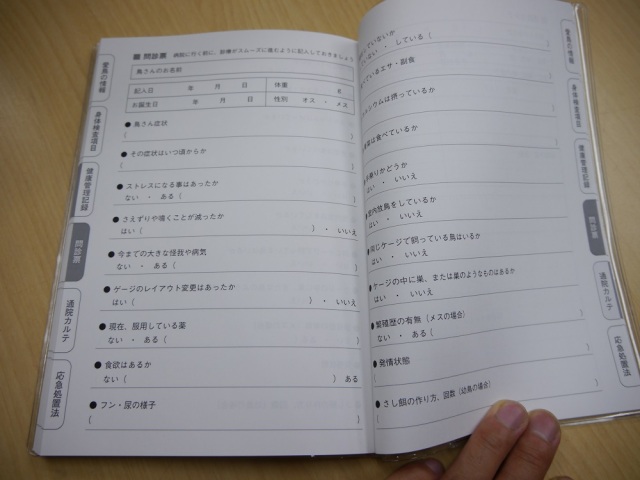 ■ 問診票 病院に行く前に、診療がスムーズに進むように記入しておきましょう
鳥さんのお名前
記入日 年 月 日 体重 g
お誕生日 年 月 日 性別 オス ・ メス
● 鳥さん症状
( )
● その症状はいつ頃からか
( )
● ストレスになる事はあったか
ない ・ ある ( )
● さえずりや囁くことが減ったか
はい ( ) ・ いいえ
● 今までの大きな怪我や病気
ない ・ ある ( )
● ゲージのレイアウト変更はあったか
はい ( ) ・ いいえ
● 現在、服用している薬
ない ・ ある ( )
● 食欲はあるか
ない ( ) ある
● フン・尿の様子
( )
愛鳥の情報
身体検査項目
健康管理記録
問診票
通院カルテ
応急処置法
ていないか
ない ・ している ( )
ているエサ・副食
)
シウムは摂っているか
)
は食べているか
)
りかどうか
はい ・ いいえ
室内放鳥をしているか
はい ・ いいえ
同じケージで飼っている鳥はいるか
はい ・ いいえ
● ケージの中に巣、または巣のようなものはあるか
はい ・ いいえ
● 繁殖歴の有無 (メスの場合)
ない ・ ある ( )
● 発情状態
( )
● さし餌の作り方、回数 (幼鳥の場合)
( )
愛鳥の情報
身体検査項目
健康管理記録
問診票
通院カルテ
応急処置法